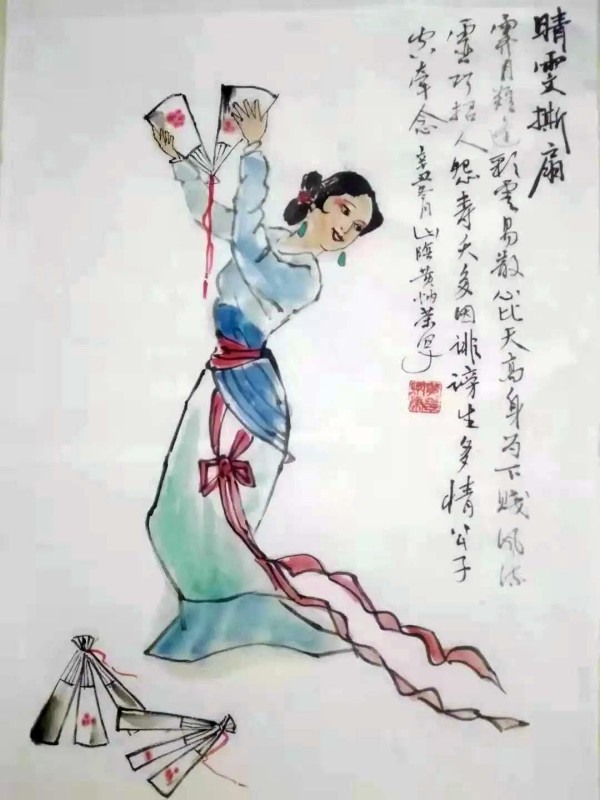 晴雯撕扇
霁月難逢彩雲易散心比天高身为下贱风流
霊巧招人怨寿夭多因诽谤生多情公子
空牵念 辛丑 月 山陰黄炳荣写